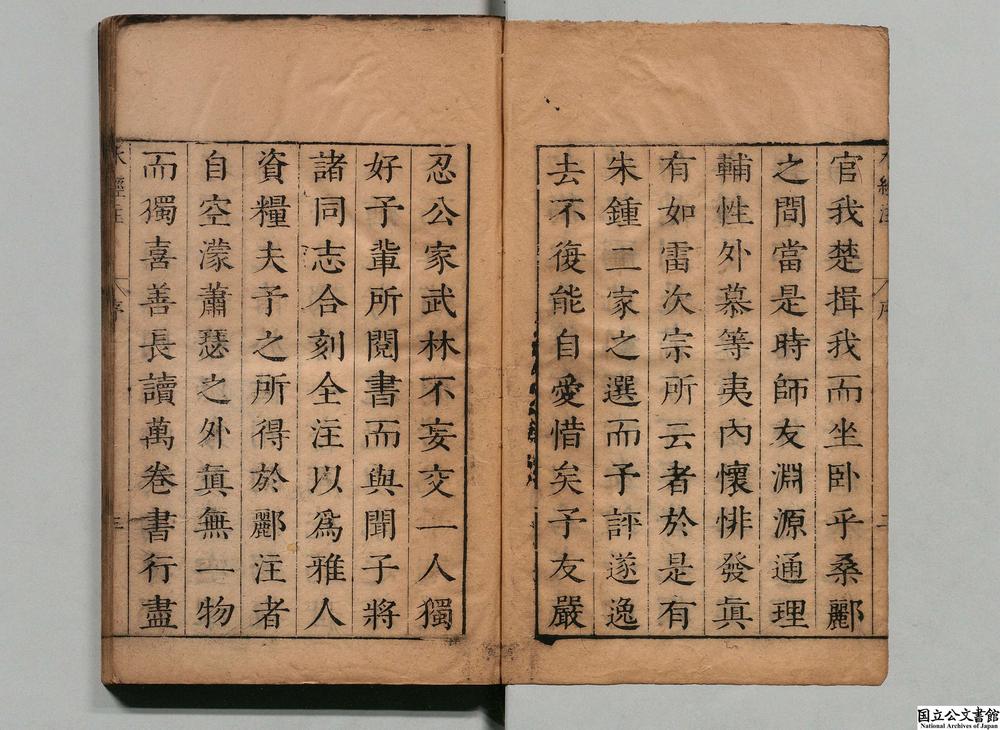 官我楚揖我而坐卧乎桑酈
之間當是時師友淵源通理
輔性外慕等夷內懷悱發眞
有如雷次宗所云者於是有
朱鍾二家之選而予評遂逸
去不復能自愛惜矣予友嚴
忍公家武林不妄交一人獨
好予輩所閱書而與聞子將
諸同志合刻全注以爲雅人
資糧夫予之所得於酈注者
自空濛蕭瑟之外眞無一物
而獨喜善長讀萬卷書行盡
水經注
序
二
水經注
序
三
国立公文書館
National Archives of Japan